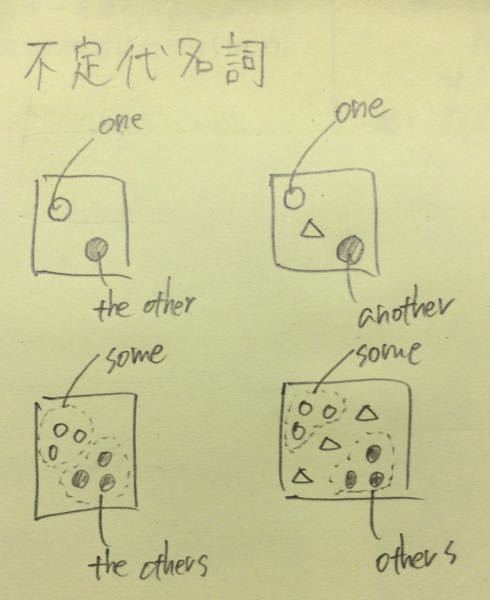 不定代名詞
one
one
the other
another
some
some
the others
others